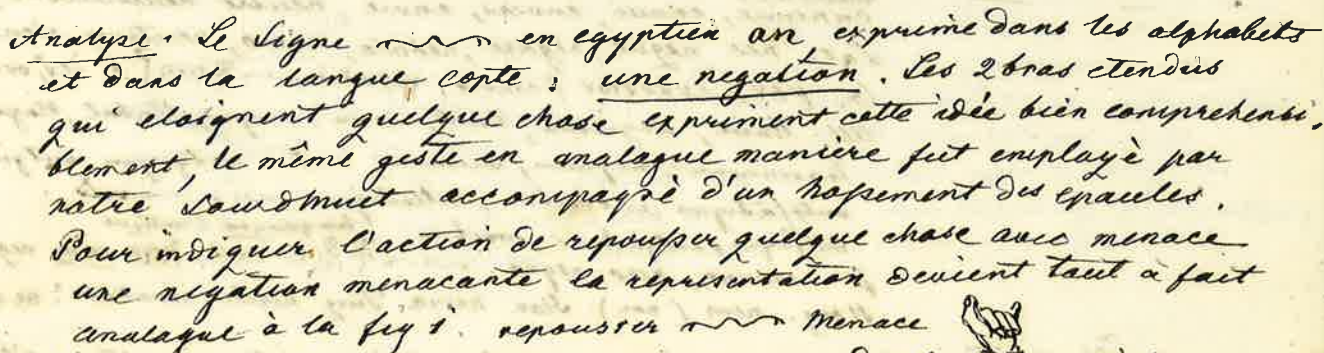 Analyse. Le signe en egyptien an, exprime dans les alphabets
et dans la langue copte : une negation. Les 2 bras etendus
qui eloignent quelque chose expriment cette idée bien comprehensi,
blement, le même geste en analogue manière fut employè par
nôtre sourdmuet accompagnè d'un hossement des epaules.
Pour indiquer l'action de repousser quelque chose avec menace
une negation menacante la representation devient tout à fait
analogue à la fig 1. repousser Menace